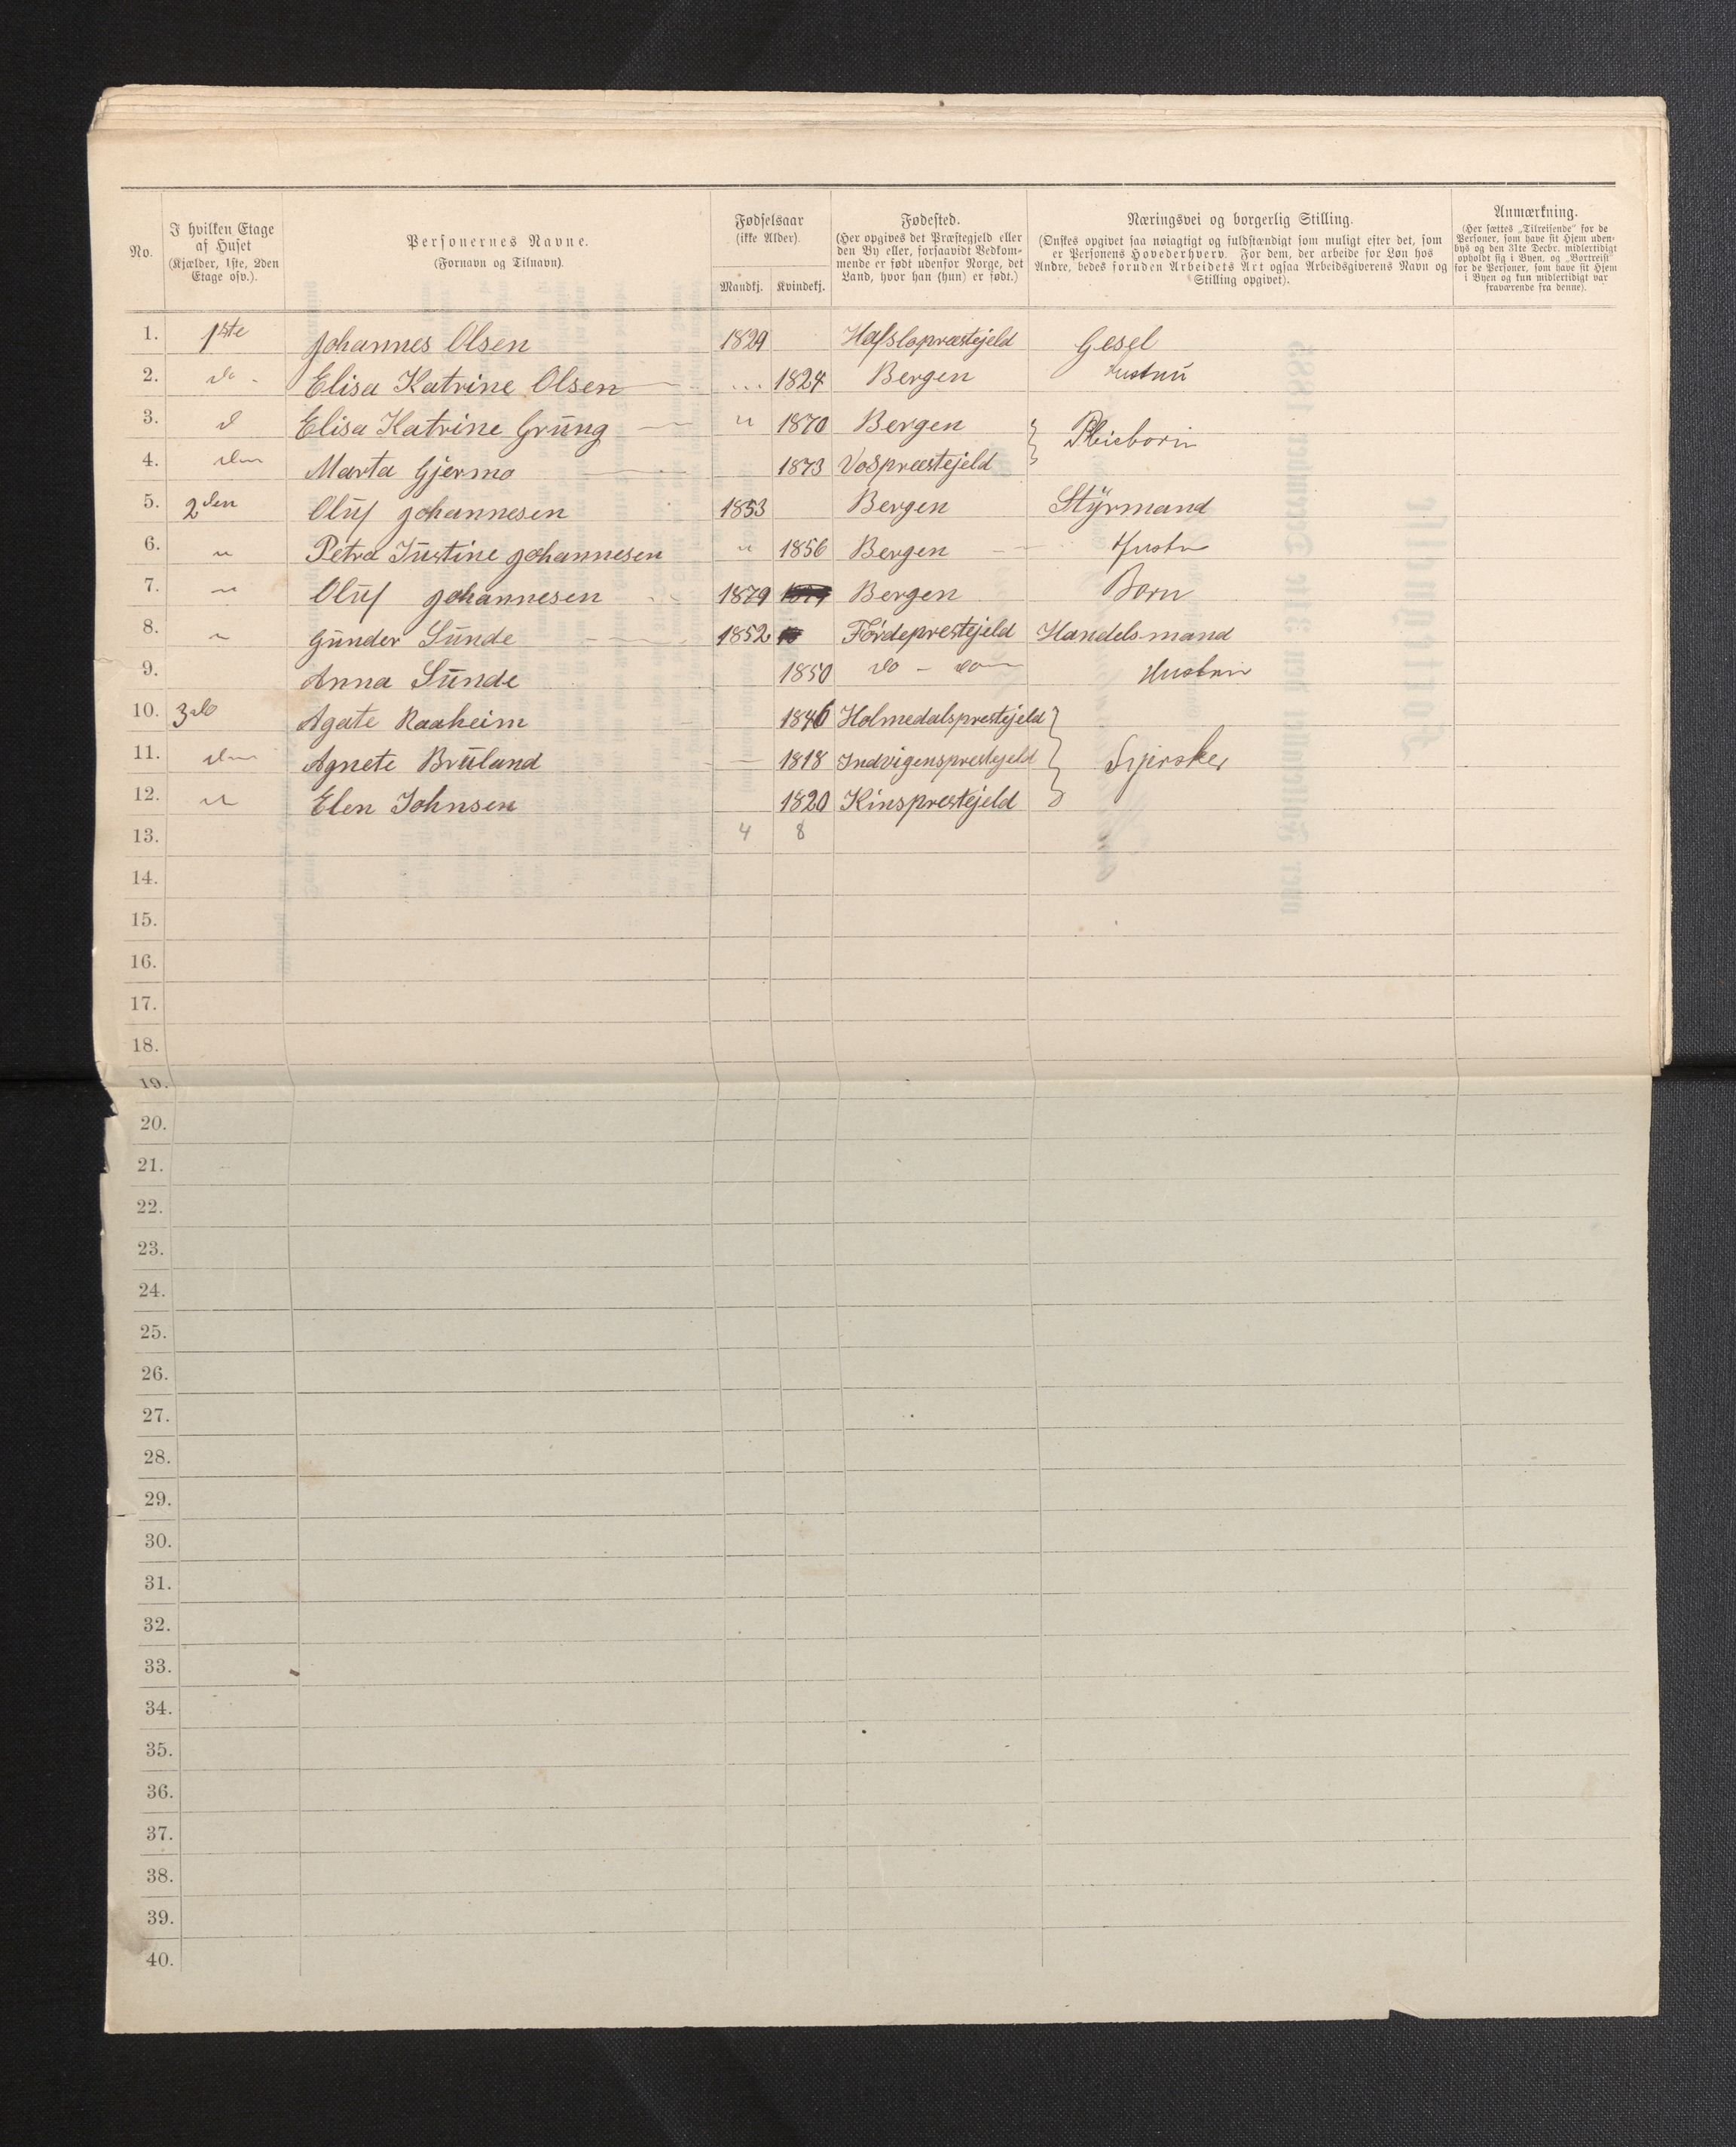 No.
I hvilken Etage af Huset (Kjælder, 1ste, 2den Etage osv.).
Personernes Navne. (Fornavn og Tilnavn).
Fødselsaar (ikke Alder).
Mandkj. Kvindekj.
Fødested. (Her opgives det Præstegjeld eller den By eller, forsaavidt Vedkommende er født udenfor Norge, det Land, hvor han (hun) er født.)
Næringsvei og borgerlig Stilling. (Ønskes opgivet saa nøiagtigt og fuldstændigt som muligt efter det, som er Personens Hovederhverv. For dem, der arbeide for Løn hos Andre, bedes foruden Arbeidets Art ogsaa Arbeidsgiverens Navn og Stilling opgivet).
Anmærkning. (Her sættes „Tilreisende" for de Personer, som have sit Hjem udenbys og den 31te Decbr. midlertidigt opholdt sig i Byen, og „Bortreist" for de Personer, som have sit Hjem i Byen og kun midlertidigt var fraværende fra denne).
1. 1ste Johannes Olsen 1829 Hafslopræstejeld Gesel
2. do - Elisa Katrine Olsen 1824 Bergen Hustru
3. d Elisa Katrine Grung " 1870 Bergen } Pleiebørn
4. do Marta Gjermo 1873 Vospræstejeld
5. 2den Oluf Johannesen 1853 Bergen Styrmand
6. " Petra Justine Johannesen " 1856 Bergen Hustr
7. " Oluf Johannesen 1879 Bergen Born
8. " Gunder Sunde 1852 Førdeprestejeld Handelsmand
9. Anna Sunde 1850 do - do Hustru
10. 3do Agate Raaheim 1846 Holmedalsprestejeld }
11. do Agnete Bruland 1818 Indvigensprestejeld
12. " Elen Johnsen 1820 Kinsprestejeld
13. 4 8
14.
15.
16.
17.
18.
19.
20.
21.
22.
23.
24.
25.
26.
27.
28.
29.
30.
31.
32.
33.
34.
35.
36.
37.
38.
39.
40.